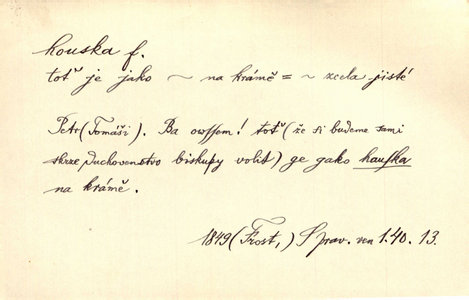 houska f.
totiž je jako ~ na krámě = ~ zcela jisté
Petr (Tomáši). Ba owssem! totiž (že si budeme sami
skrze Duchovenstvo biskupy volit) ge gako hauska
na krámě.
1849 (Frost,) Sprav. ven 1.40. 13.